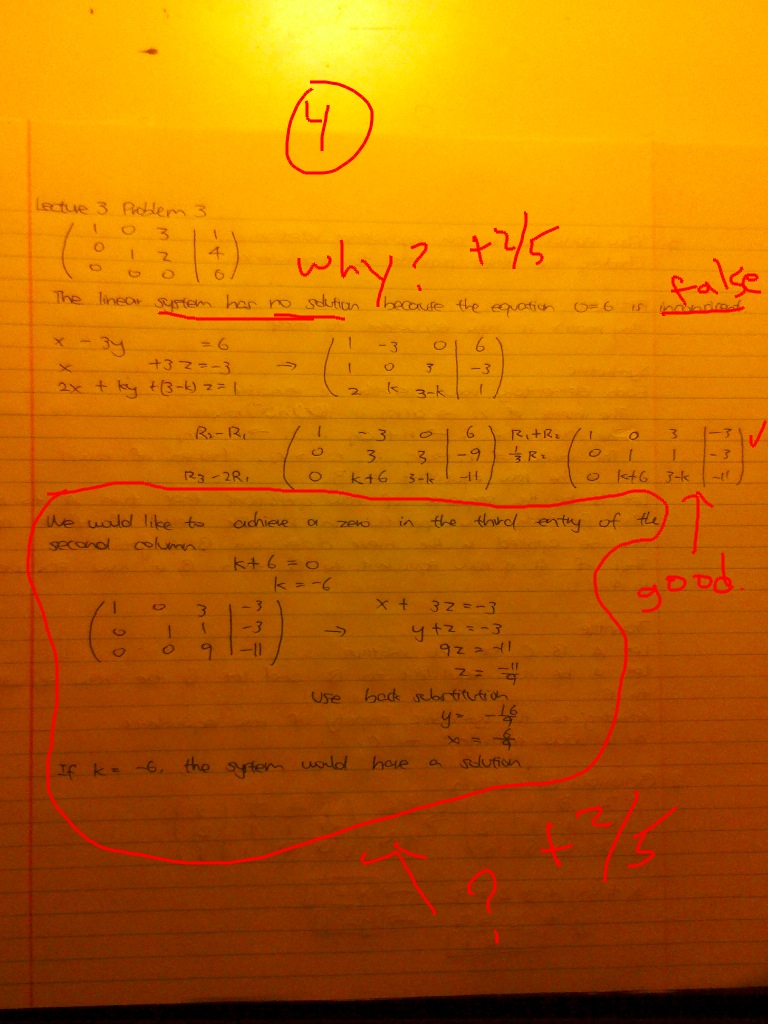 4
Lecture 3 Problem 3
( 1 0 3 | 1
0 1 2 | 4
0 0 0 | 6 )
why? +2/5
false
The linear system has no solution because the equation 0=6 is inconsistent
x - 3y = 6
x +3z = -3
2x + ky + (3-k)z = 1
→ ( 1 -3 0 | 6
1 0 3 | -3
2 k 3-k | 1 )
R2-R1
R3-2R1
( 1 -3 0 | 6
0 3 3 | -9
0 k+6 3-k | -11 )
R1+R2
1/3 R2
( 1 0 3 | -3
0 1 1 | -3
0 k+6 3-k | -11 ) ✓
good.
We would like to achieve a zero in the third entry of the
second column.
k+6 = 0
k = -6
( 1 0 3 | -3
0 1 1 | -3
0 0 9 | -11 )
→ x + 3z = -3
y+z = -3
9z = -11
z = -11/9
Use back substitution
y = -16/9
x =
If k = -6, the system would have a solution.
? +2/5